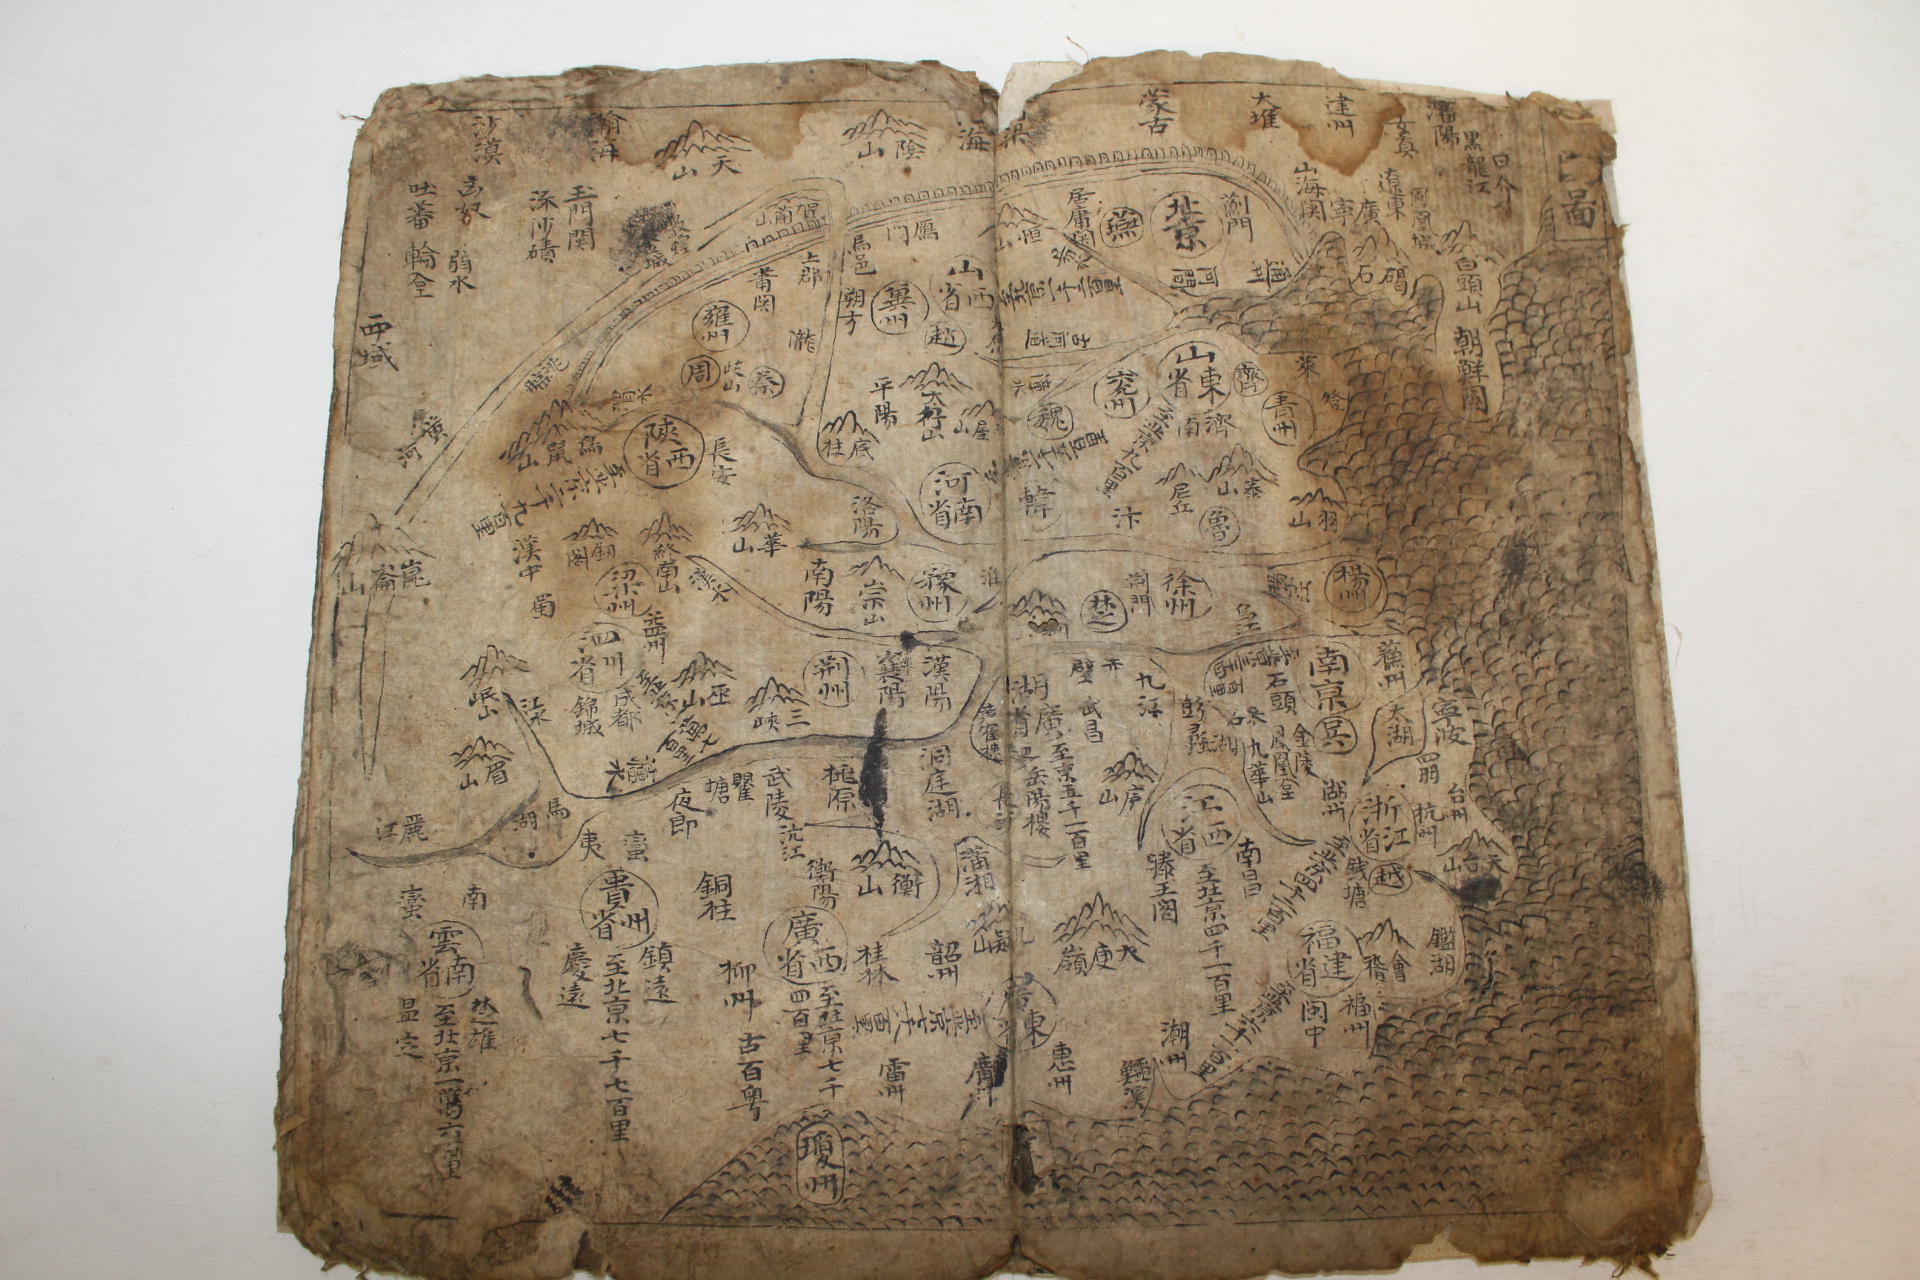 圖
日本
黑龍江
瀋陽
女真
建州
大堆
蒙古
海
陰山
天山
瀚海
沙漠
遼東
鳳凰城
廣寧
山海関
白頭山
朝鮮國
碣石
薊門
北京
燕
居庸関
恒山
鴈門
馬邑
賀蘭山
敦煌
玉門関
流沙磧
匈奴
弱水
吐蕃
輪台
西域
山西省
冀州
朔方
上郡
蕭関
雍州
隴
趙
周
岐山
秦
臨洮
渭水
山東省
齊
兗州
萊
登
青州
濟南
至北京九百里
魏
太行山
平陽
底柱
王屋山
陝西省
長安
鳥鼠山
至北京二千九百里
黃河
河南省
洛陽
韓
汴
尼丘
泰山
魯
羽山
華山
終南山
釼閣
漢中
崑崙山
梁州
蜀
漢水
南陽
崇山
豫州
淮
楚
荆門
徐州
楊州
四川省
益州
成都
錦城
岷山
眉山
江水
巫山
三峽
荆州
襄陽
漢陽
湖廣省
至京五千一百里
赤壁
武昌
九江
彭蠡湖
石頭
南京
吳
蘓州
太湖
寧波
四明
金陵
鳳凰臺
九華山
采石
湖州
浙江省
杭州
台州
天台山
越
錢塘
岳陽樓
黃雀樓
洞庭湖
桃源
武陵
沅江
瞿塘
夜郎
馬湖
麗江
夷
蠻
廬山
江西省
至北京四千一百里
南昌
滕王閣
瀟湘
衡山
衡陽
銅柱
貴州省
至北京七千七百里
鎮遠
慶遠
南蠻
雲南省
至北京一萬六百里
楚雄
昷定
廣西省
至北京七千四百里
桂林
柳州
古百粤
韶州
大庾嶺
廣東省
惠州
廣州
雷州
潮州
鱷溪
福建省
閩中
福州
會稽
鑑湖
瓊州